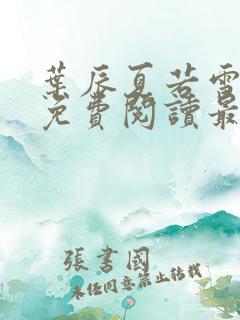 葉辰夏若雪
免費閱讀最
張書國
未經同意禁止轉載